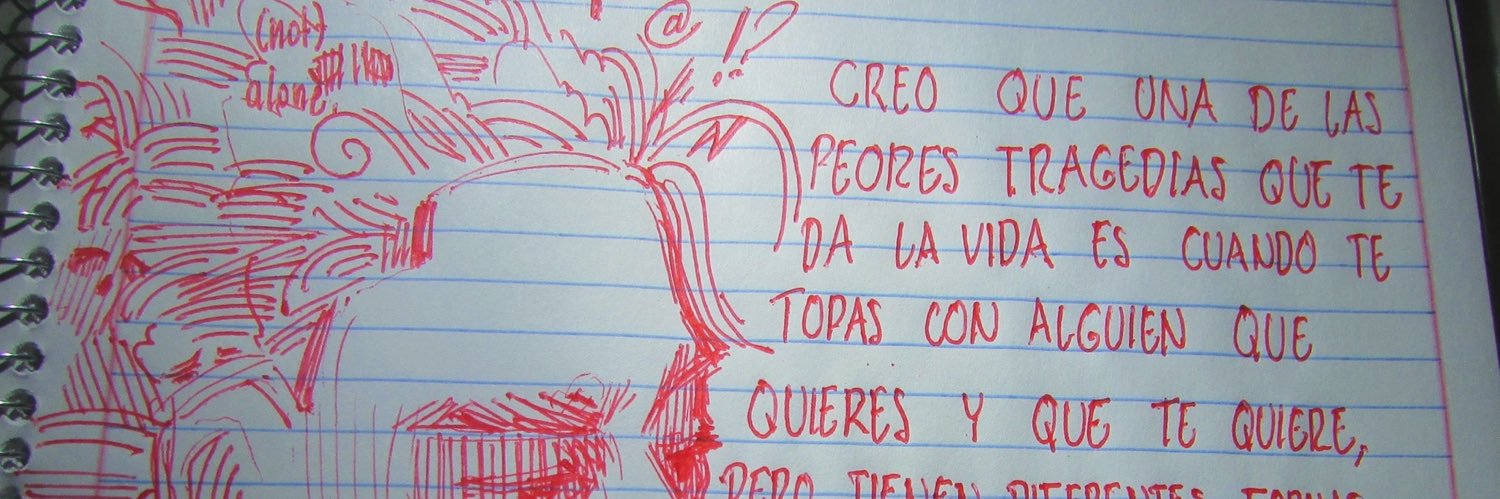 (not)
alone
@ !?
CREO QUE UNA DE LAS
PEORES TRAGEDIAS QUE TE
DA LA VIDA ES CUANDO TE
TOPAS CON ALGUIEN QUE
QUIERES Y QUE TE QUIERE,
PERO TIENEN DIFERENTES FORMAS